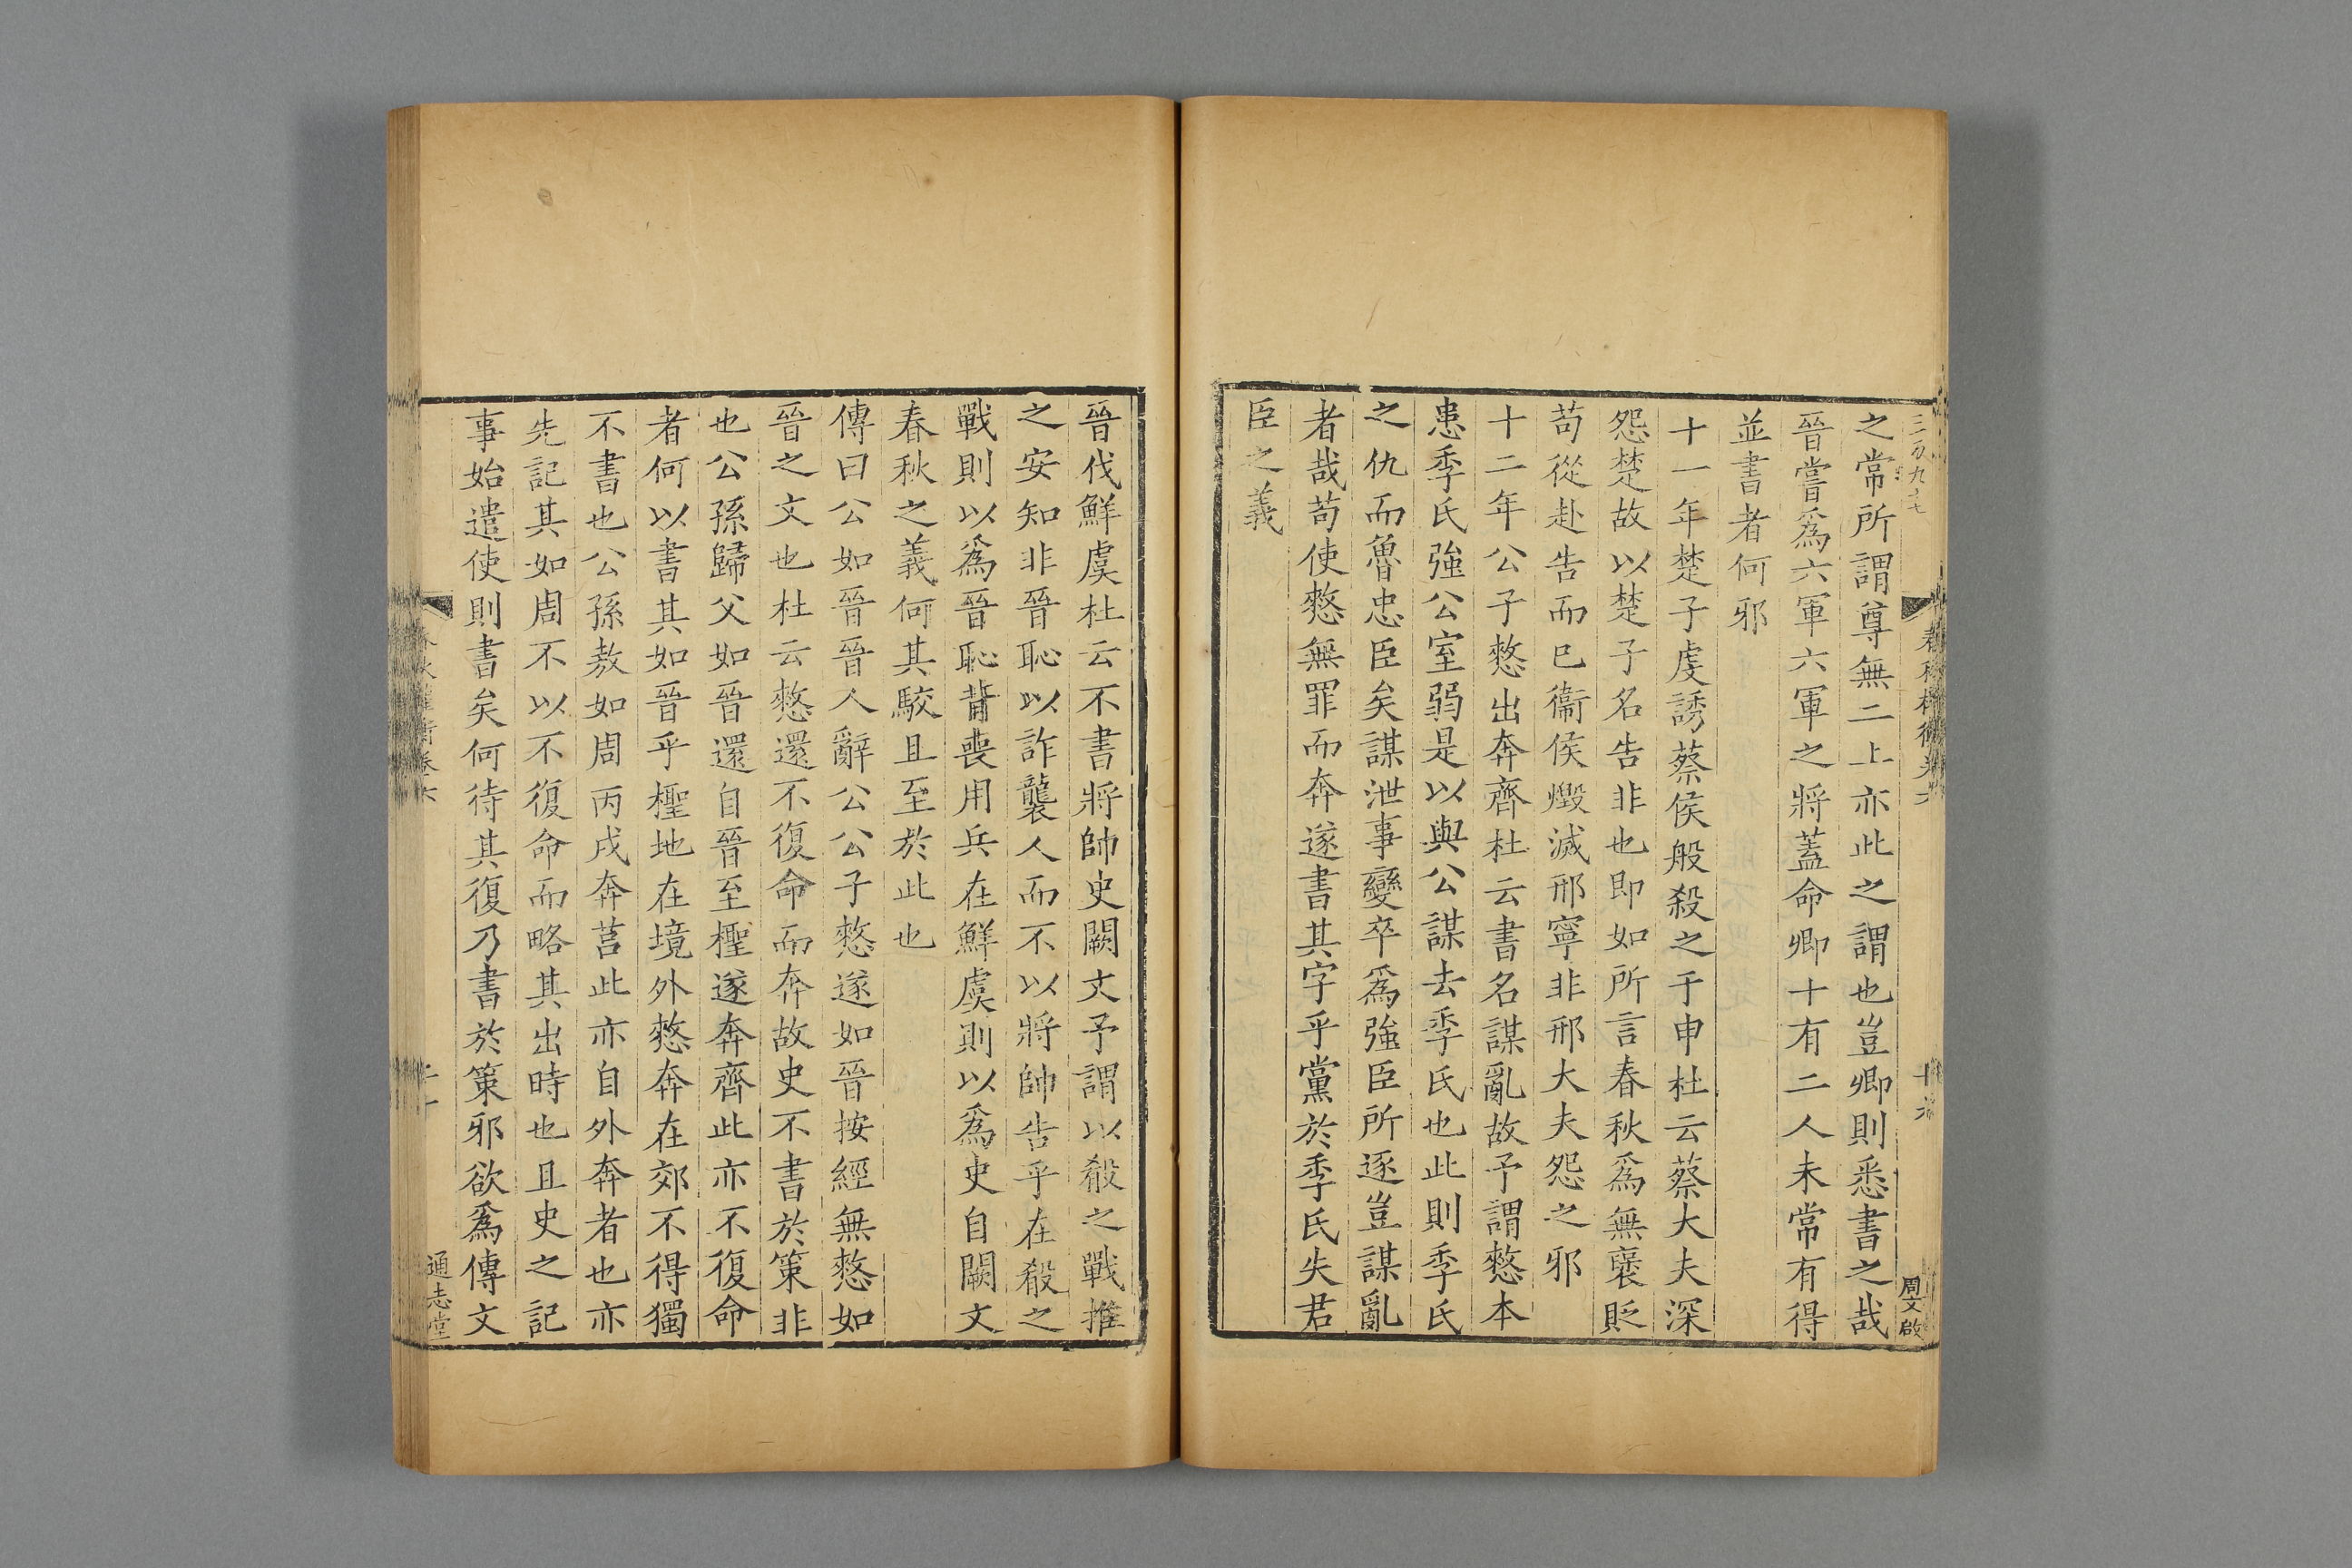 之常所謂尊無二上亦此之謂也豈卿則悉書之哉
晉嘗爲六軍六軍之將蓋命卿十有二人未常有得
並書者何邪
十一年楚子虔誘蔡侯般殺之于申杜云蔡大夫深
怨楚故以楚子名告非也即如所言春秋爲無襃貶
苟從赴告而已衞侯燬滅邢寧非邢大夫怨之邪
十二年公子憖出奔齊杜云書名謀亂故予謂憖本
患季氏強公室弱是以與公謀去季氏也此則季氏
之仇而魯忠臣矣謀泄事變卒爲強臣所逐豈謀亂
者哉苟使憖無罪而奔遂書其字乎黨於季氏失君
臣之義
周文啟
晉伐鮮虞杜云不書將帥史闕文予謂以殽之戰推
之安知非晉恥以詐襲人而不以將帥告乎在殽之
戰則以爲晉恥背喪用兵在鮮虞則以爲史自闕文
春秋之義何其駮且至於此也
傳曰公如晉晉人辭公公子憖遂如晉按經無憖如
晉之文也杜云憖還不復命而奔故史不書於策非
也公孫歸父如晉還自晉至檉遂奔齊此亦不復命
者何以書其如晉乎檉地在境外憖奔在郊不得獨
不書也公孫敖如周丙戌奔莒此亦自外奔者也亦
先記其如周不以不復命而略其出時也且史之記
事始遣使則書矣何待其復乃書於策邪欲爲傳文
通志堂